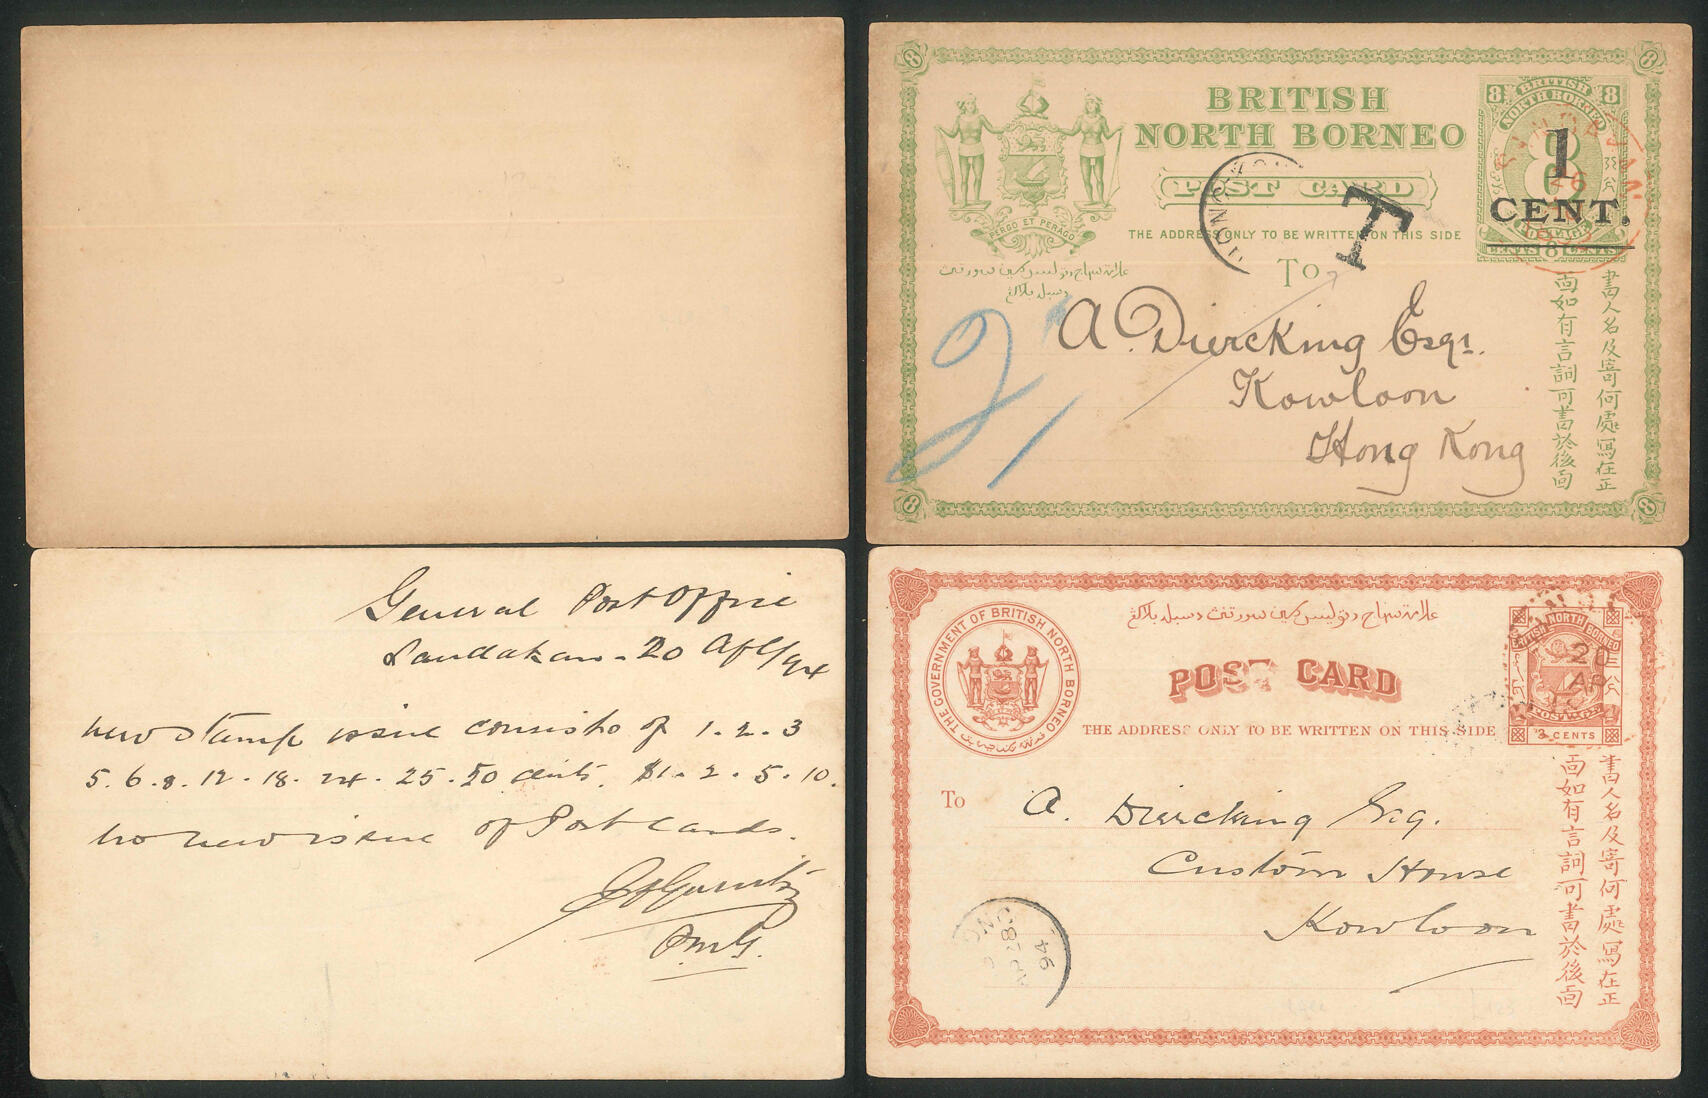 BRITISH
NORTH BORNEO
POST CARD
THE ADDRESS ONLY TO BE WRITTEN ON THIS SIDE
To
PERGO ET PERAGO
8
8
8
8
8 BRITISH 8
NORTH BORNEO
POSTAGE
CENTS 8 CENTS
1
CENT.
SANDAKAN
26
HONG KONG
T
A. Diercking Esqr.
Kowloon
Hong Kong
書人名及寄何處寫在正
面如有言詞可書於後面
General Post Office
Sandakan - 20 Apl/94
new stamp issue consists of 1. 2. 3
5. 6. 8. 12. 18. 24. 25. 50 cents. $1. 2. 5. 10.
no new issue of Post cards.
P.M.G.
THE GOVERNMENT OF BRITISH NORTH BORNEO
POST CARD
THE ADDRESS ONLY TO BE WRITTEN ON THIS SIDE
BRITISH NORTH BORNEO
POSTAGE
3 CENTS
20
AP
To
A. Diercking Esq.
Custom House
Kowloon
ONG
AP 28
94
書人名及寄何處寫在正
面如有言詞可書於後面